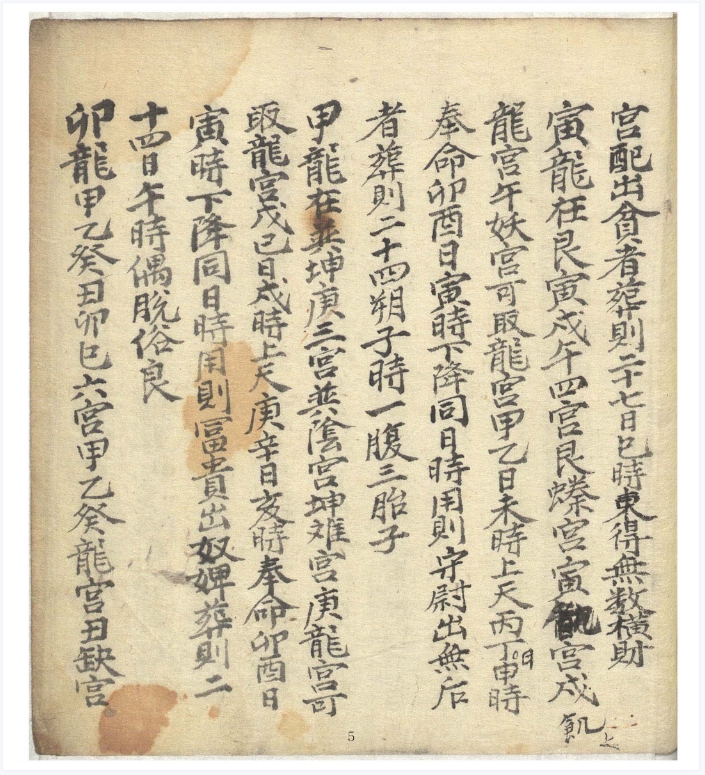 宮配出貧者葬則二十七日巳時東得無数横財
寅龍在艮寅戌午四宮艮蠑宮寅飢宮戌
龍宮午妖宮可取龍宮甲乙日未時上天丙丁日申時
奉命卯酉日寅時下降同日時用則守尉出無后
者葬則二十四朔子時一腹三胎子
甲龍在巽坤庚三宮巽陰宮坤难宮庚龍宮可
取龍宮戊己日戌時上天庚辛日亥時奉命卯酉日
寅時下降同日時用則冨貴出奴婢葬則二
十四日午時偶脱俗良
卯龍甲乙癸丑卯巳六宮甲乙癸龍宮丑缺宮
飢
5